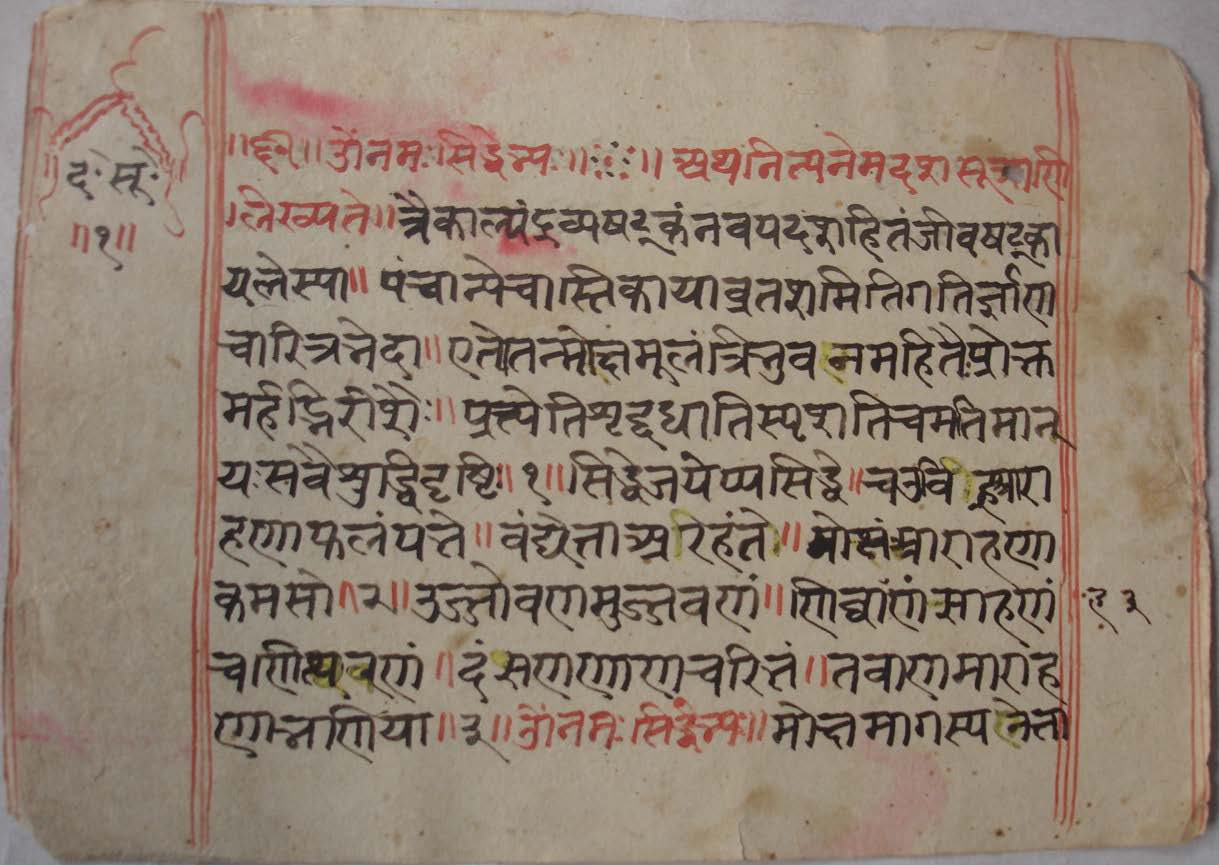 द॰ सू॰
॥१॥
॥र्द॰॥ ॐ नमः सिद्धेभ्यः ॥ ॥ अथ नित्यनेम दश सूत्राणि
लिख्यते॥ त्रैकाल्यं द्रव्यषट्कं नवपदशहितं जीवषट्का
यलेस्या॥ पंचान्येचास्तिकाया व्रतशमितिगतिर्ज्ञाण
चारित्रभेदा॥ एतोतन्मोक्षमूलं त्रिभुवनमहितैः प्रोक्त
मर्हद्भिरीशैः॥ प्रत्येति श्रृद्दधाति स्पृशति च मतिमान्
यः सवै श्रुद्धिदृष्टिः॥ १॥ सिद्धेजयेप्यसिद्धे॥ चउवि आरा
हणाफलं पत्ते॥ वंद्येत्ता अरिहंते॥ आराहणा
कमसो॥ २॥ उज्जोवणमुज्जवणं॥ णिव्वाणं साहणं
च णि रणं॥ दंसणणाणचरित्तं॥ तवाणमाराह
णा भणिया॥ ३॥ ॐ नमः सिद्धेभ्यः॥ मोक्षमागस्य नेता